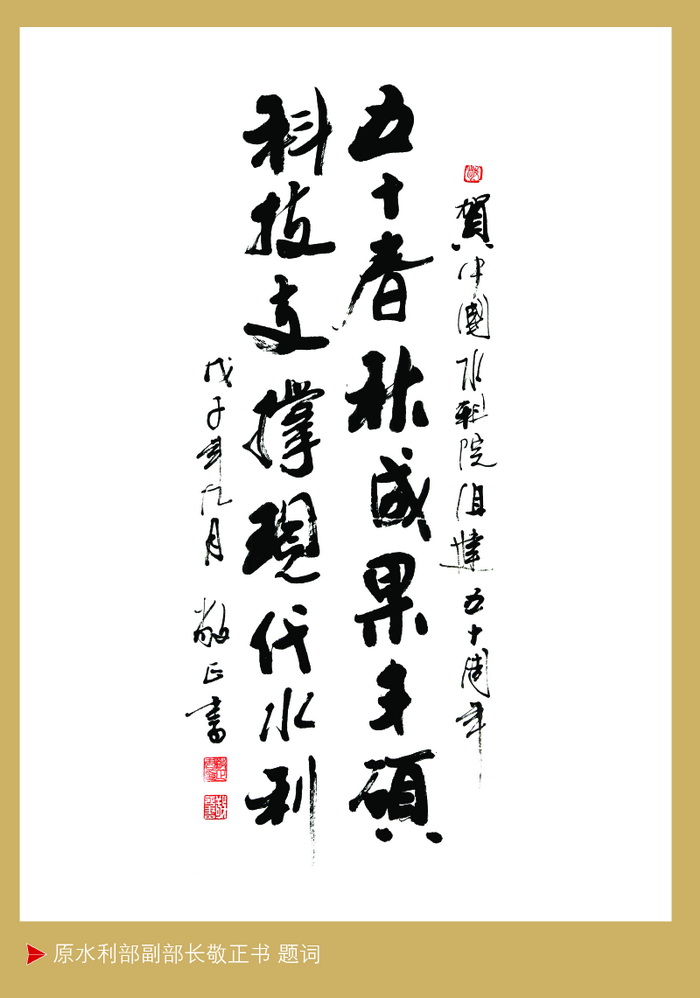 賀中國水科院组建五十周年
五十春秋成果丰碩
科技支撑現代水利
戊子年九月 敬正書
原水利部副部长敬正书 题词